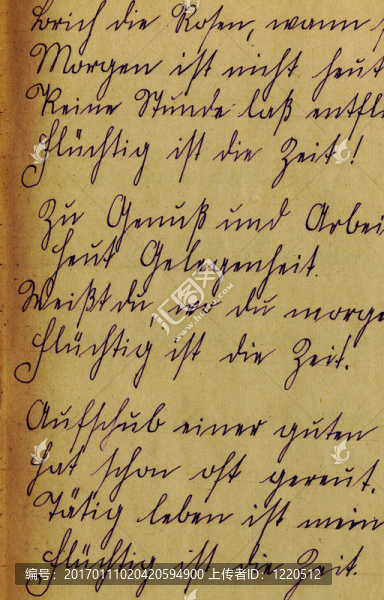 Brich die Rosen, wann s
Morgen ist nicht heut
Keine Stunde laß entfli
Flüchtig ist die Zeit!
Zu Genuß und Arbei
heut Gelegenheit.
Weißt du, wo du morge
Flüchtig ist die Zeit.
Aufschub einer guten
hat schon oft gereut.
Tätig leben ist mein
Flüchtig ist die Zeit.
汇图网
www.huitu.com
编号：20170111020420594900 上传者ID：1220512